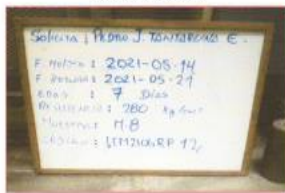 Solicita : PEDRO J. TANTARUNA E.
F. MOLDEO : 2021-05-14
F. ROTURA : 2021-05-21
EDAD : 7 Días
RESISTENCIA : 280 Kg/cm²
MUESTRA : M-8
CÓDIGO :